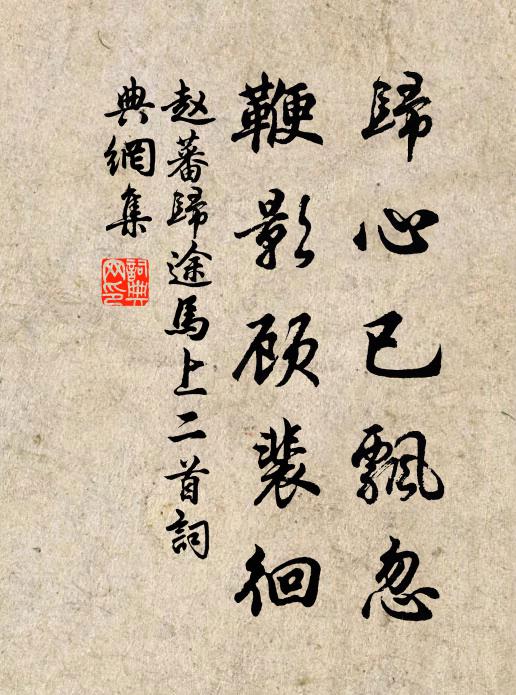 歸心已飄忽
鞭影顾裴徊
赵蕃歸途馬上二首詞
典網集
詞典
网印